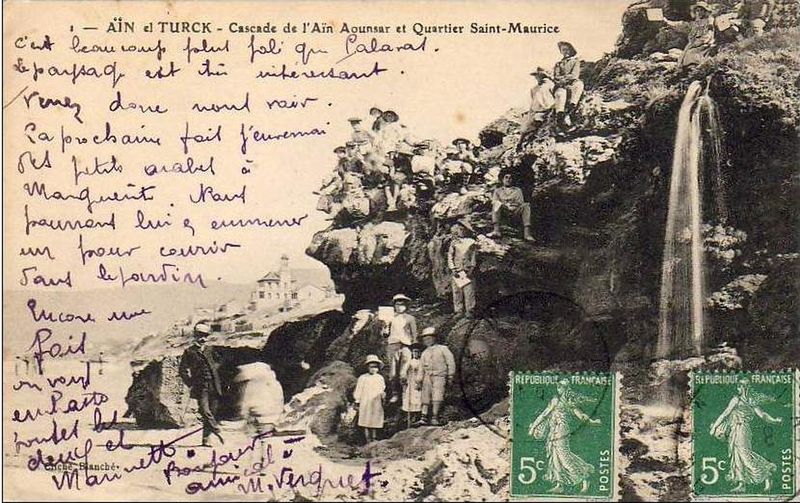 1 — AÏN el TURCK - Cascade de l'Aïn Aounsar et Quartier Saint-Maurice
c'est beaucoup plus joli que Palavas.
Le paysage est très intéressant.
Venez donc nous voir.
La prochaine fois j'enverrai
des petits arabes à
Marguerite. Nous
pourrons lui en emmener
un pour courir
dans le jardin.
Encore une
fois
en
toutes les
deux et
Bonjour
amical à
M. Vergnet.
Cliché Blanché
REPUBLIQUE FRANÇAISE
5c POSTES
REPUBLIQUE FRANÇAISE
5c POSTES